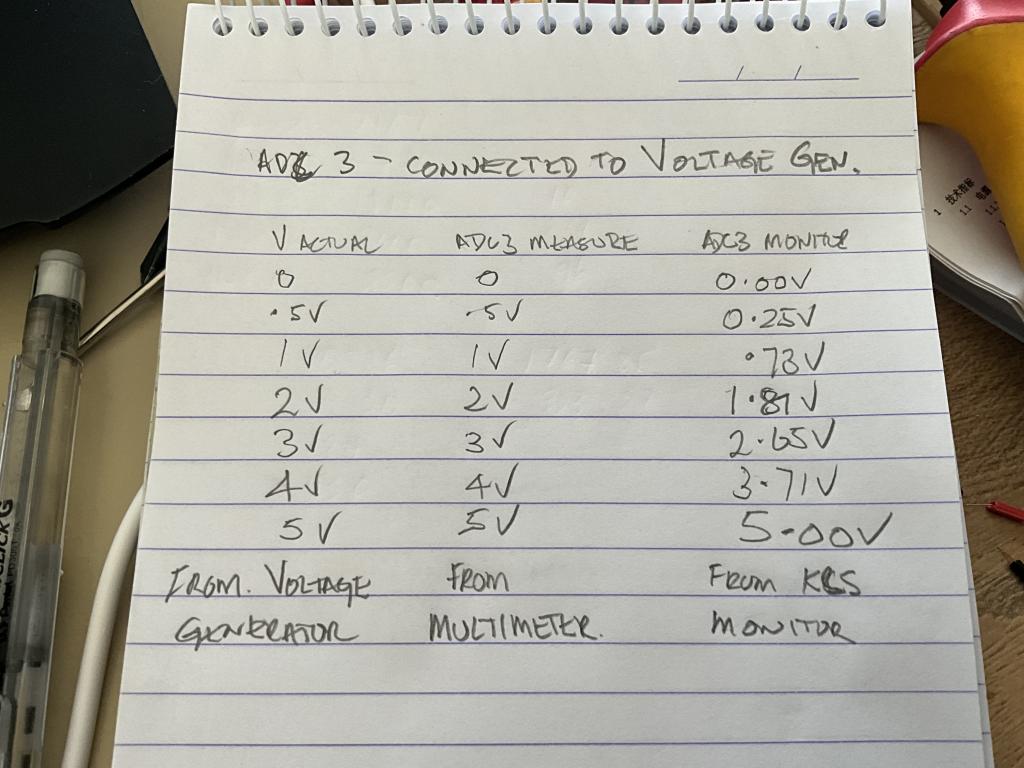 ADC 3 - CONNECTED TO VOLTAGE GEN.
V ACTUAL ADC3 MEASURE ADC3 MONITOR
0 0 0.00V
.5V .5V 0.25V
1V 1V .73V
2V 2V 1.81V
3V 3V 2.65V
4V 4V 3.71V
5V 5V 5.00V
FROM. VOLTAGE FROM FROM KCS
GENERATOR MULTIMETER. MONITOR
CLICK G
1 技术指标
1.1 电源